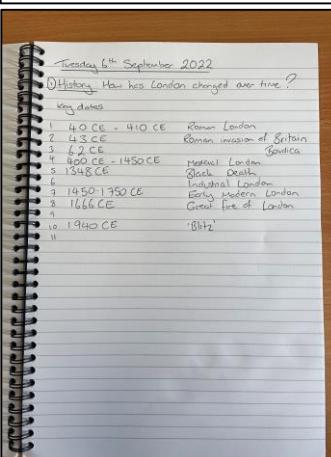 Tuesday 6th September 2022
① History How has London changed over time?
Key dates
1 40 CE - 410 CE Roman London
2 43 CE Roman invasion of Britain
3 62 CE Boudica
4 400 CE - 1450 CE Medieval London
5 1348 CE Black Death
6 Industrial London
7 1450-1750 CE Early Modern London
8 1666 CE Great fire of London
9
10 1940 CE 'Blitz'
11